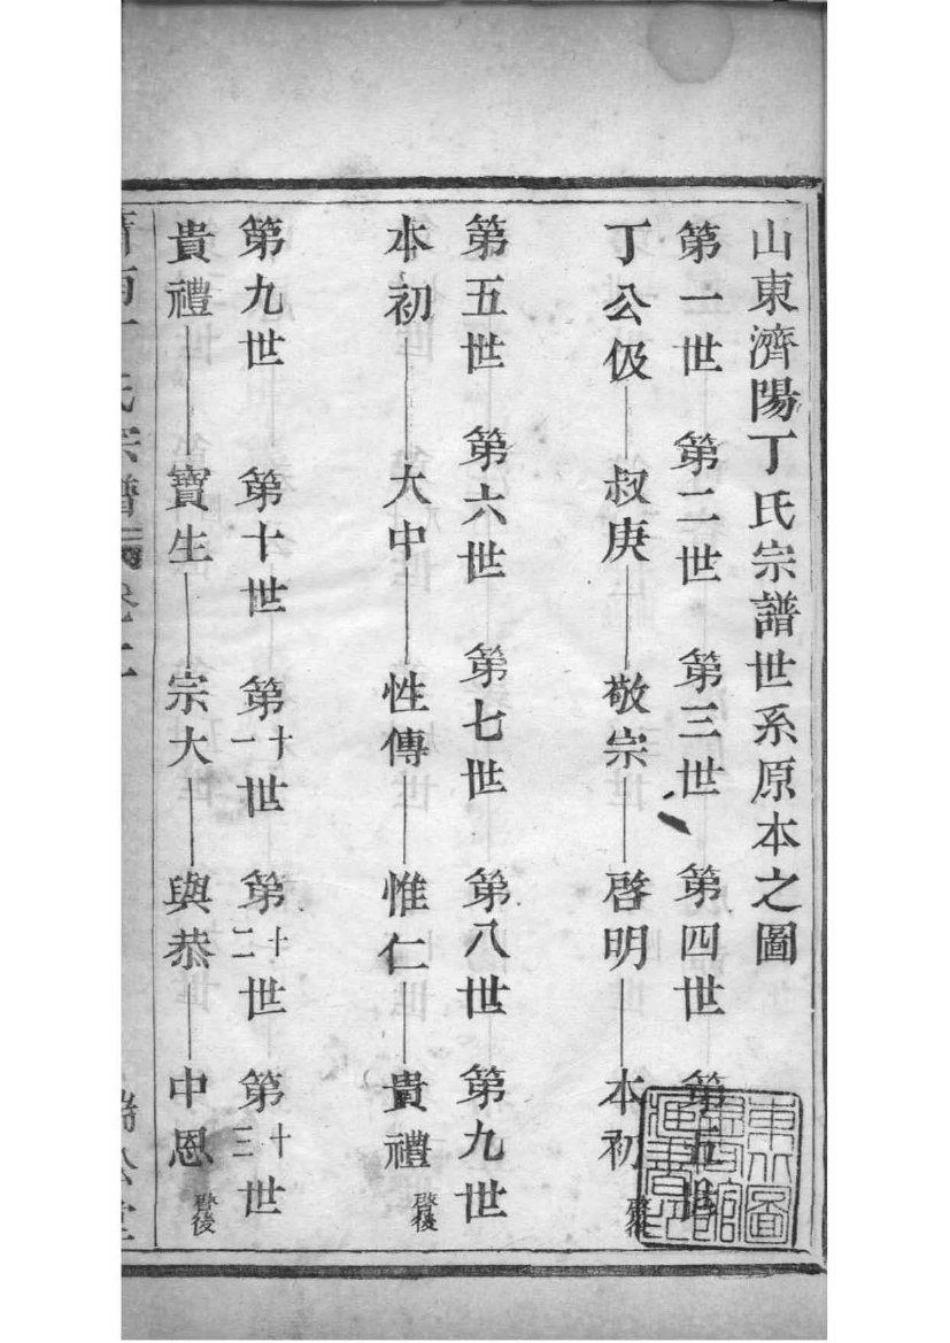 山東濟陽丁氏宗譜世系原本之圖
第一世 第二世 第三世 第四世 第五世
丁公伋 叔庚 敬宗 啓明 本初
第五世 第六世 第七世 第八世 第九世
本初 大中 性傳 惟仁 貴禮
第九世 第十世 第十一世 第十二世 第十三世
貴禮 寶生 宗大 與恭 中恩